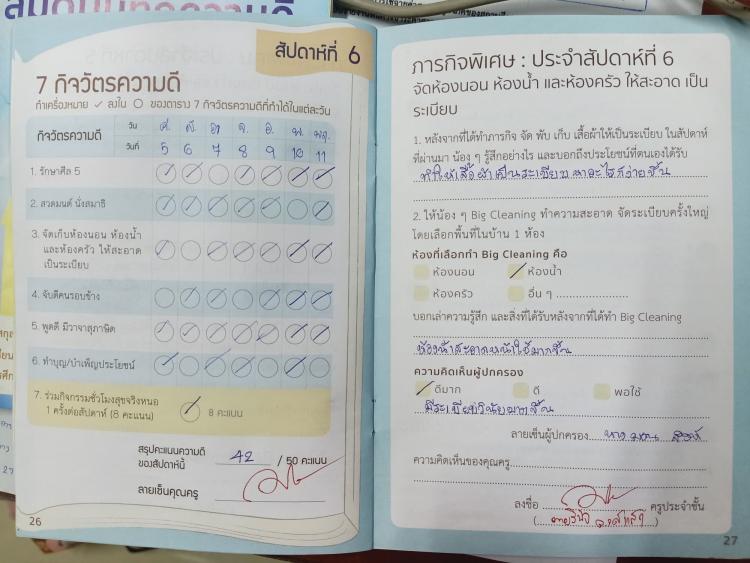 สัปดาห์ที่ 6
7 กิจวัตรความดี
ทำเครื่องหมาย ✓ ลงใน ○ ของตาราง 7 กิจวัตรความดีที่ทำได้ในแต่ละวัน
กิจวัตรความดี วัน ศ. ส. อา จ. อ. พ. พฤ.
วันที่ 5 6 7 8 9 10 11
1. รักษาศีล 5
2. สวดมนต์ นั่งสมาธิ
3. จัดเก็บห้องนอน ห้องน้ำ
และห้องครัว ให้สะอาด
เป็นระเบียบ
4. จับดีคนรอบข้าง
5. พูดดี มีวาจาสุภาษิต
6. ทำบุญ/บำเพ็ญประโยชน์
7. ร่วมกิจกรรมชั่วโมงสุขจริงหนอ
1 ครั้งต่อสัปดาห์ (8 คะแนน) 8 คะแนน
สรุปคะแนนความดี
ของสัปดาห์นี้ 42 / 50 คะแนน
ลายเซ็นคุณครู
26
ภารกิจพิเศษ : ประจำสัปดาห์ที่ 6
จัดห้องนอน ห้องน้ำ และห้องครัว ให้สะอาด เป็น
ระเบียบ
1. หลังจากที่ได้ทำภารกิจ จัด พับ เก็บ เสื้อผ้าให้เป็นระเบียบ ในสัปดาห์
ที่ผ่านมา น้อง ๆ รู้สึกอย่างไร และบอกถึงประโยชน์ที่ตนเองได้รับ
ทำให้เสื้อผ้าเป็นระเบียบ หาอะไรก็ง่ายขึ้น
2. ให้น้อง ๆ Big Cleaning ทำความสะอาด จัดระเบียบครั้งใหญ่
โดยเลือกพื้นที่ในบ้าน 1 ห้อง
ห้องที่เลือกทำ Big Cleaning คือ
ห้องนอน ✓ ห้องน้ำ
ห้องครัว อื่น ๆ
บอกเล่าความรู้สึก และสิ่งที่ได้รับหลังจากที่ได้ทำ Big Cleaning
ห้องน้ำสะอาดหน้าใช้มากขึ้น
ความคิดเห็นผู้ปกครอง
✓ ดีมาก ดี พอใช้
มีระเบียบวินัยมากขึ้น
ลายเซ็นผู้ปกครอง
ความคิดเห็นของคุณครู
ลงชื่อ ครูประจำชั้น
27